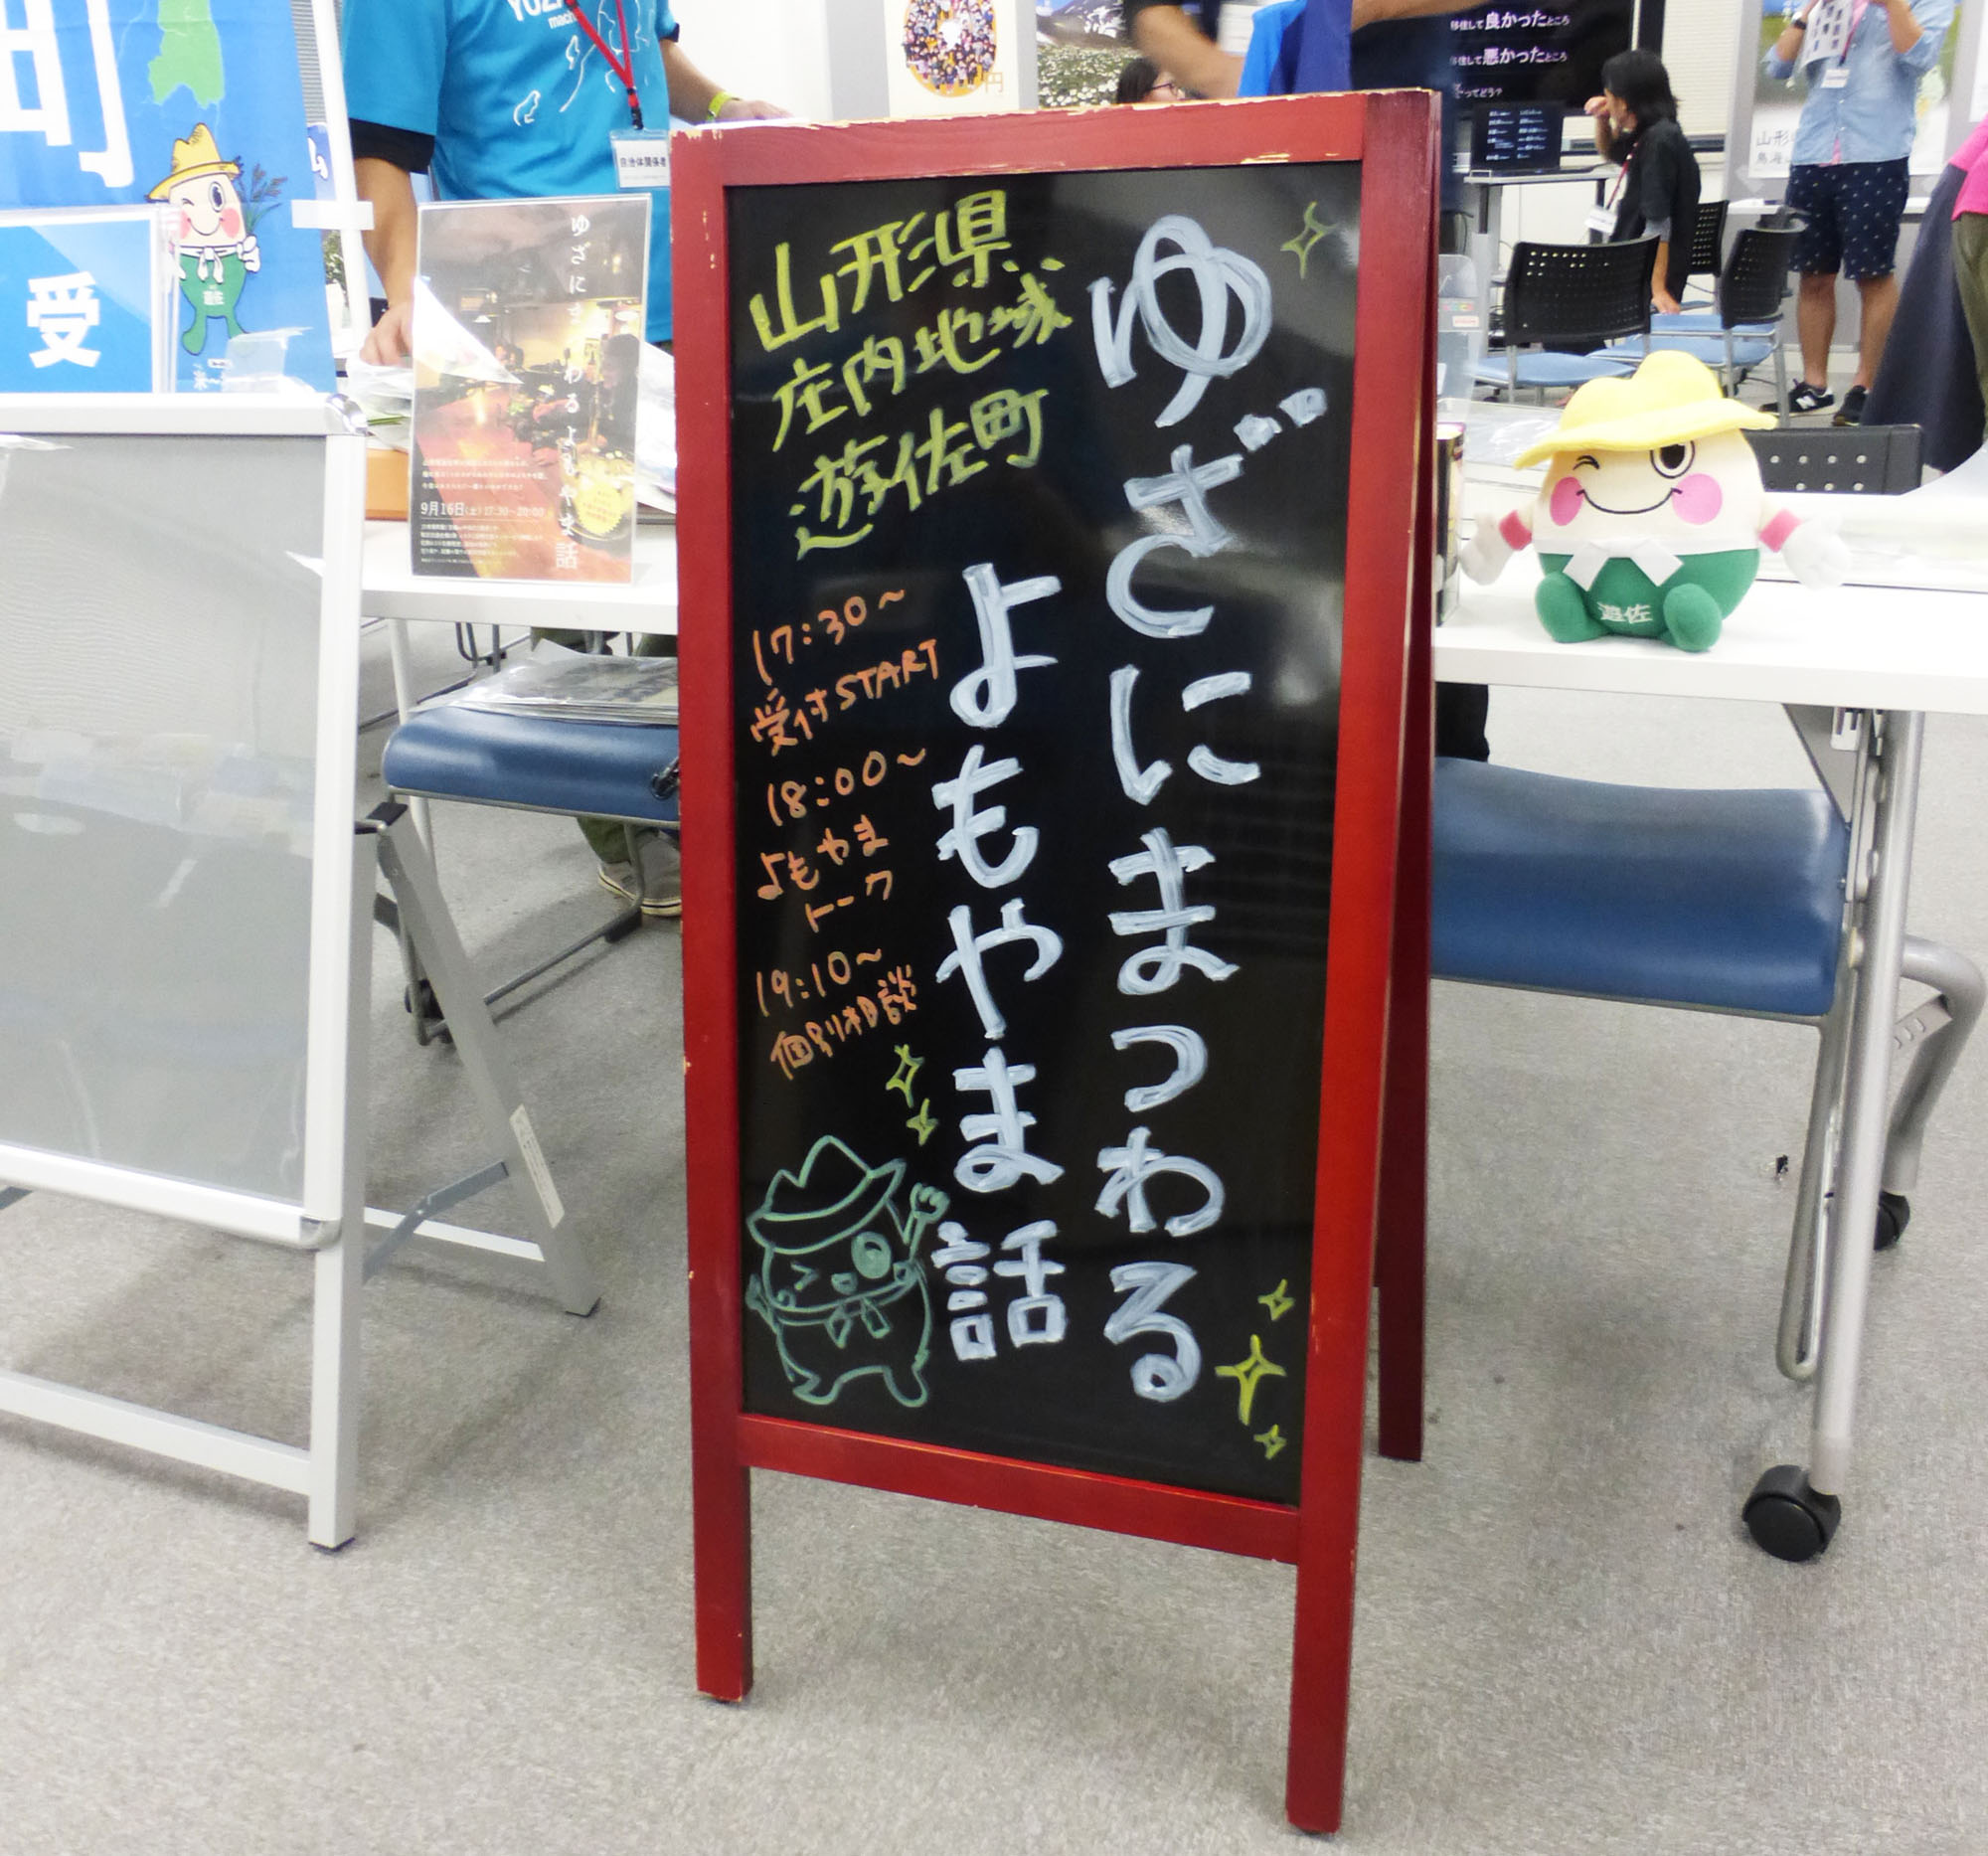 ゆざにまつわる
よもやま話
山形県
庄内地域
遊佐町
17:30~
受付START
18:00~
よもやま
トーク
19:10~
個別相談
町
受
遊佐
自治体関係者
ゆざにまつわるよもやま話
9月16日(土)17:30~20:00
移住して良かったところ
移住して悪かったところ
ってどう?
遊佐
山形